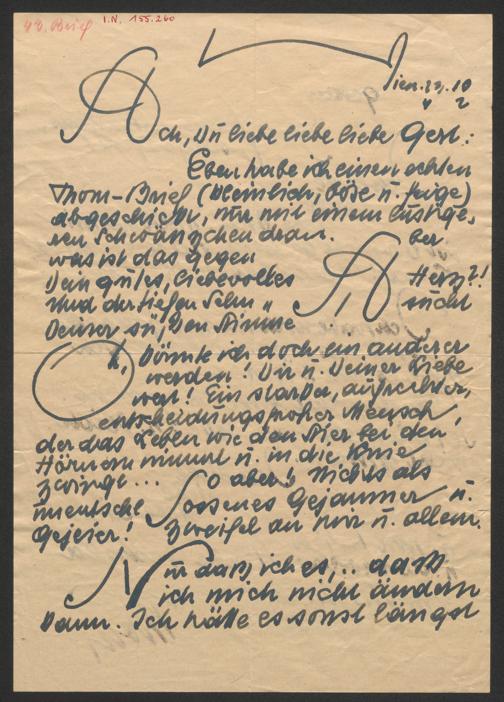 48. Brief I.N. 155.260
Wien. 23. 10
Ach, Du liebe liebe liebe Gerl:
Eben habe ich einen echten
Thom-Brief (kleinlich, böse u. feige)
abgeschickt, nur mit einem lustige-
ren Schwänzchen dran. Aber
was ist das gegen
Dein gutes, liebevolles Herz?!
Und der tiefen Sehn „ sucht
Deiner süßen Stimme
O, könnte ich doch ein anderer
werden! Dir u. Deiner Liebe
wert! Ein starker, aufrechter,
entscheidungsfroher Mensch,
der das Leben wie den Stier bei den
Hörnern nimmt u. in die Knie
zwingt... So aber! Nichts als
unentschlossenes Gejammer u.
Gejeier! Zweifel an mir u. allem.
Nur daß ich es,.. daß
ich mich nicht ändern
kann. Ich hätte es sonst längst